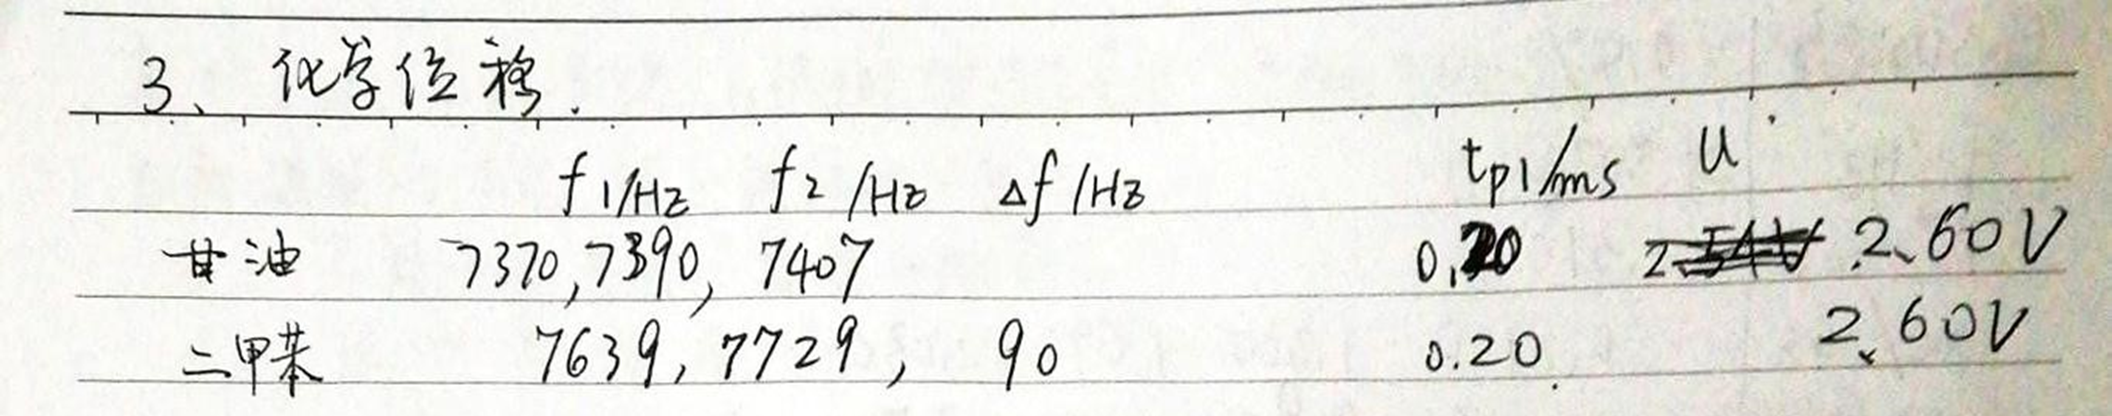 3、化学位移.
f1/Hz f2/Hz Δf/Hz tp1/ms U
甘油 7370,7390, 7407 0.20 2.60V
二甲苯 7639, 7729, 90 0.20 2.60V